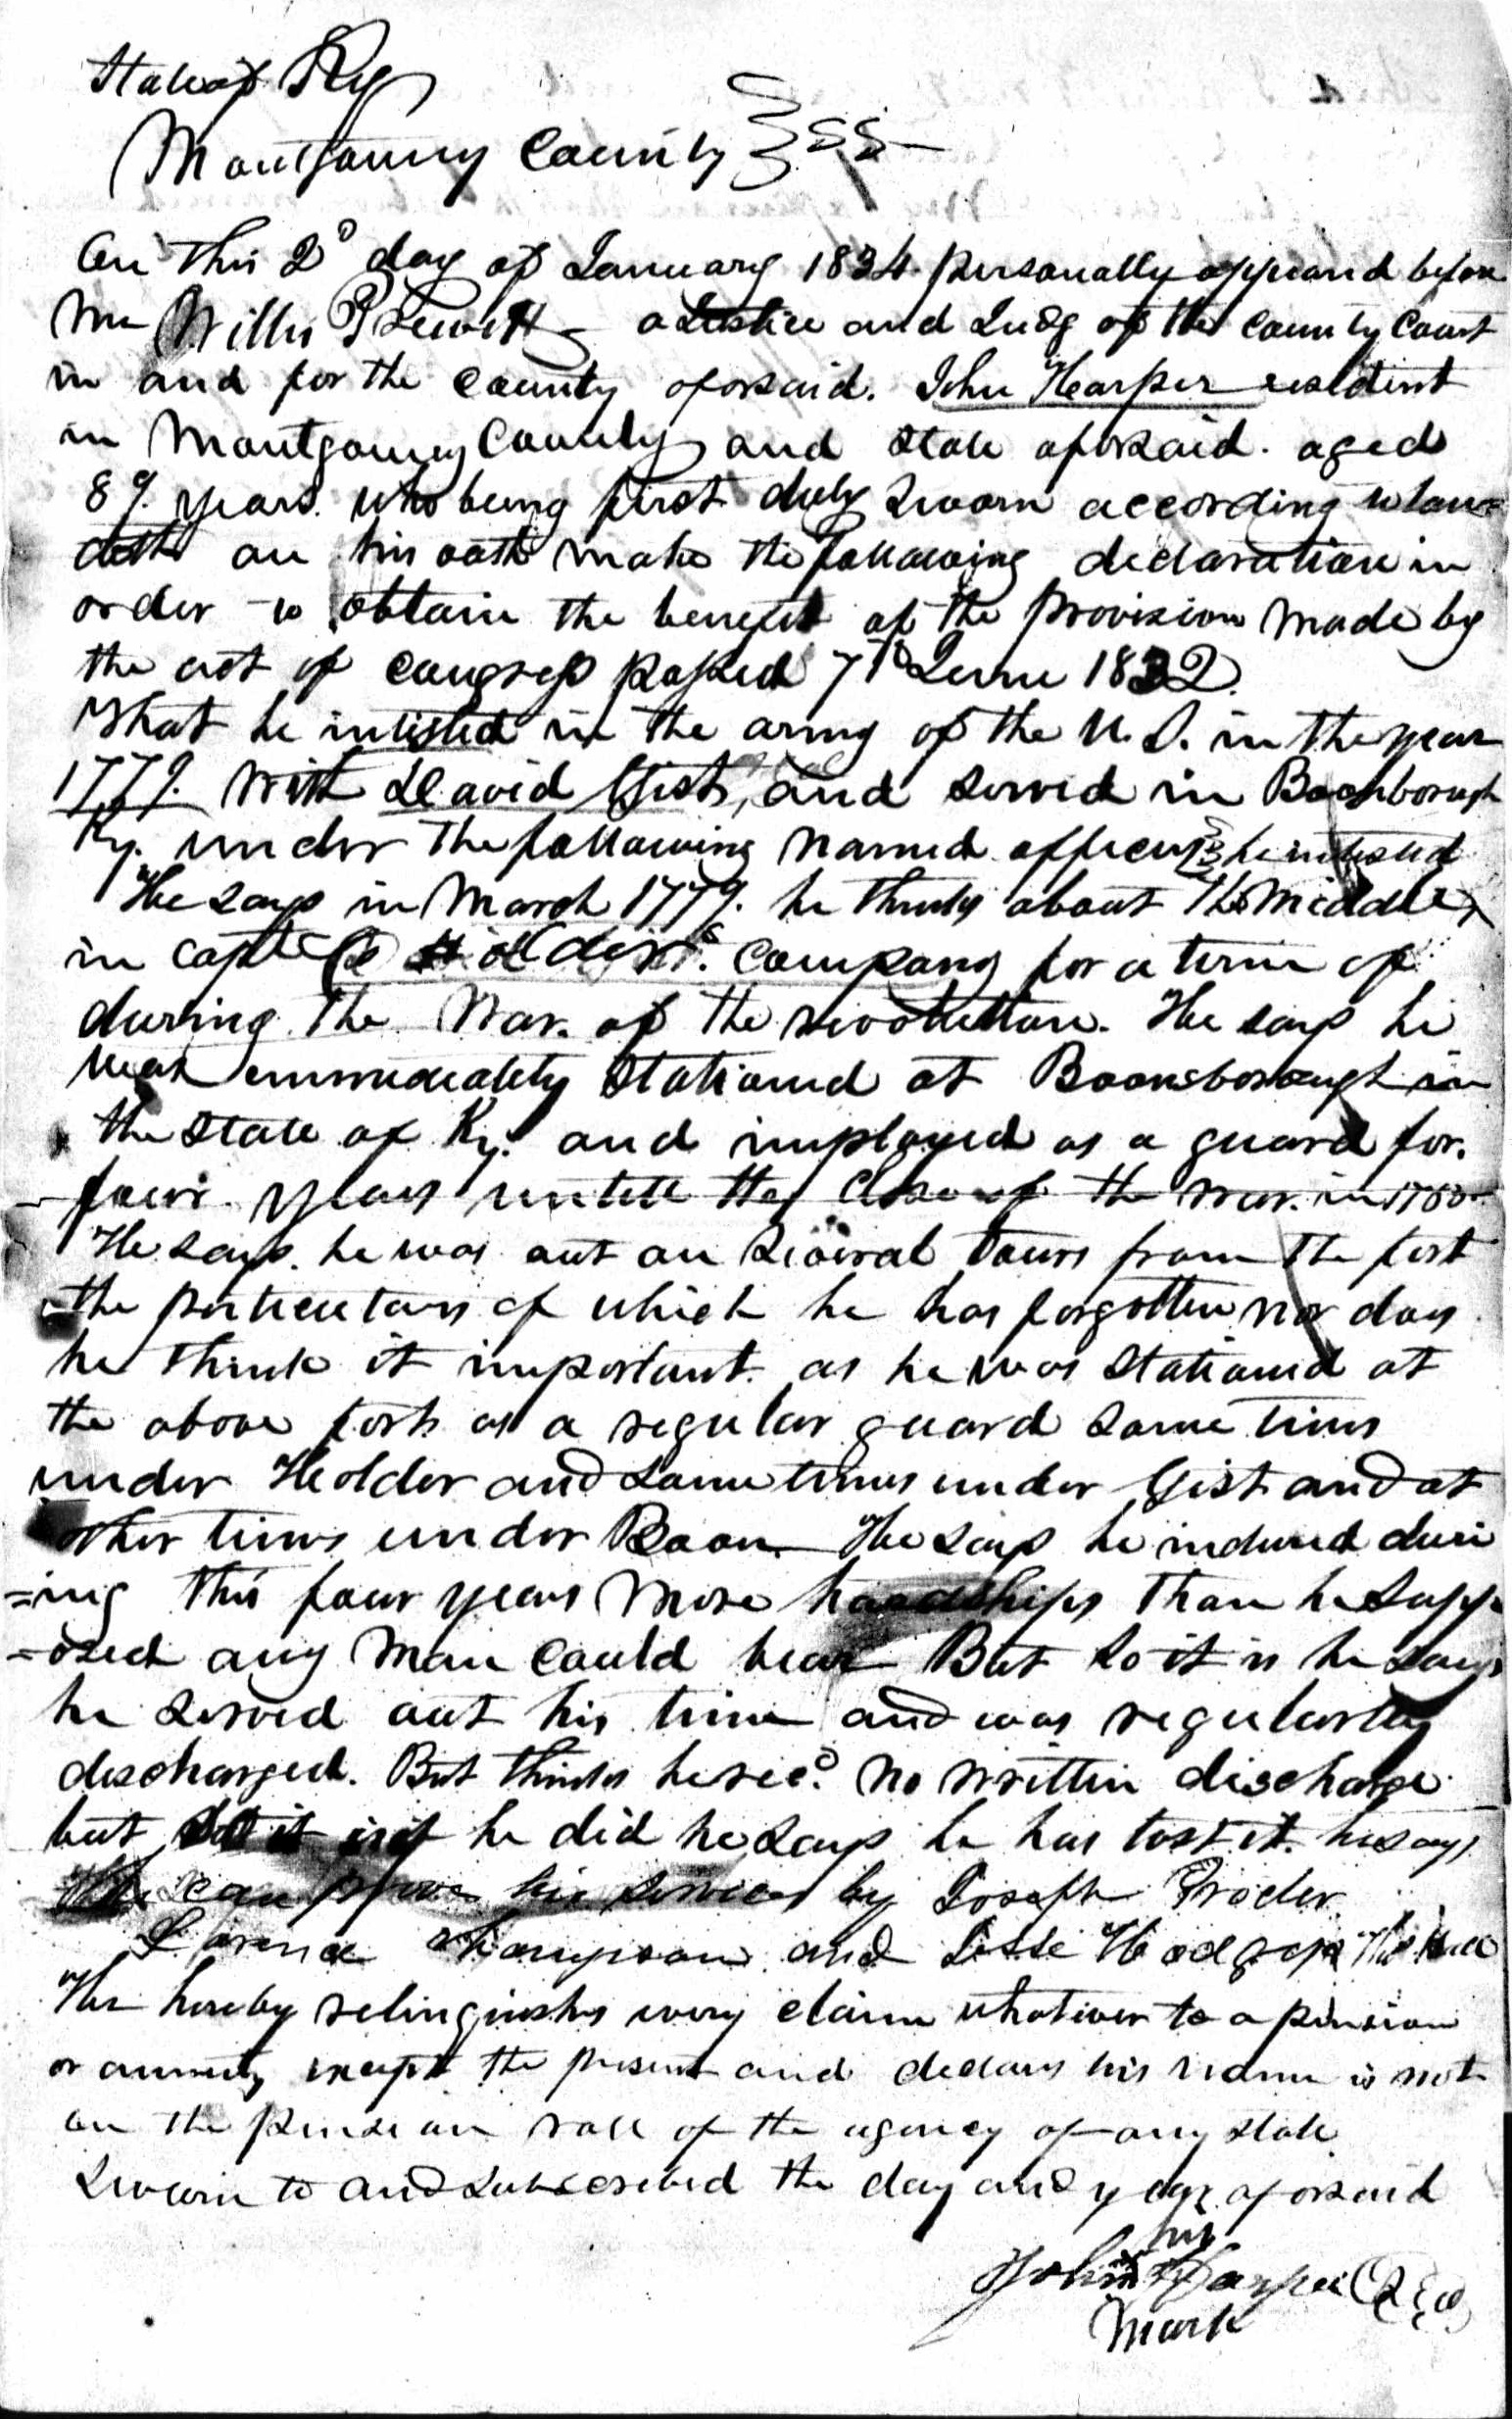 State of Ky
Montgomery County } SS
On this 2d day of January 1834 personally appeared before
me Willis Prewitt a Justice and Judg of the County Court
in and for the County aforsaid. John Harper resident
in Montgomery County and State aforsaid. aged
89 years. who being first duly sworn according to law
doth on his oath make the following declaration in
order to obtain the benefit of the provision made by
the act of Congress passed 7th June 1832.
That he inlisted in the army of the U.S. in the year
1779. with David Gist, and served in Boonborough
Ky. under the following named officers he inlisted
He says in March 1779. he thinks about the middle
in capt Holders. Company for a term of
during the War. of the revolution. He says he
was immediately stationed at Boonsborough in
the State of Ky. and imployed as a guard for.
four years untill the close of the war. in
He says. he was out on several tours from the fort
the particulars of which he has forgotten nor does
he think it important. as he was stationed at
the above fort as a regular guard some times
under Holder and some times under Gist and at
other times under Boon. He says he indured dur
=ing this four years more hardships than he supp
=osed any man could bear But so it is he says
he served out his time and was regularly
discharged. But thinks he recd. no written discharge
but if he did he says he has lost it. he says
he can prove his services by Joseph Proctor
Thompson and Jesse Hodges
He hereby relinquishes every claim whatever to a pension
or annuity except the present and declars his name is not
on the pension roll of the agency of any state
Sworn to and subscribed the day and year aforsaid
his
John X Harper (Seal)
mark